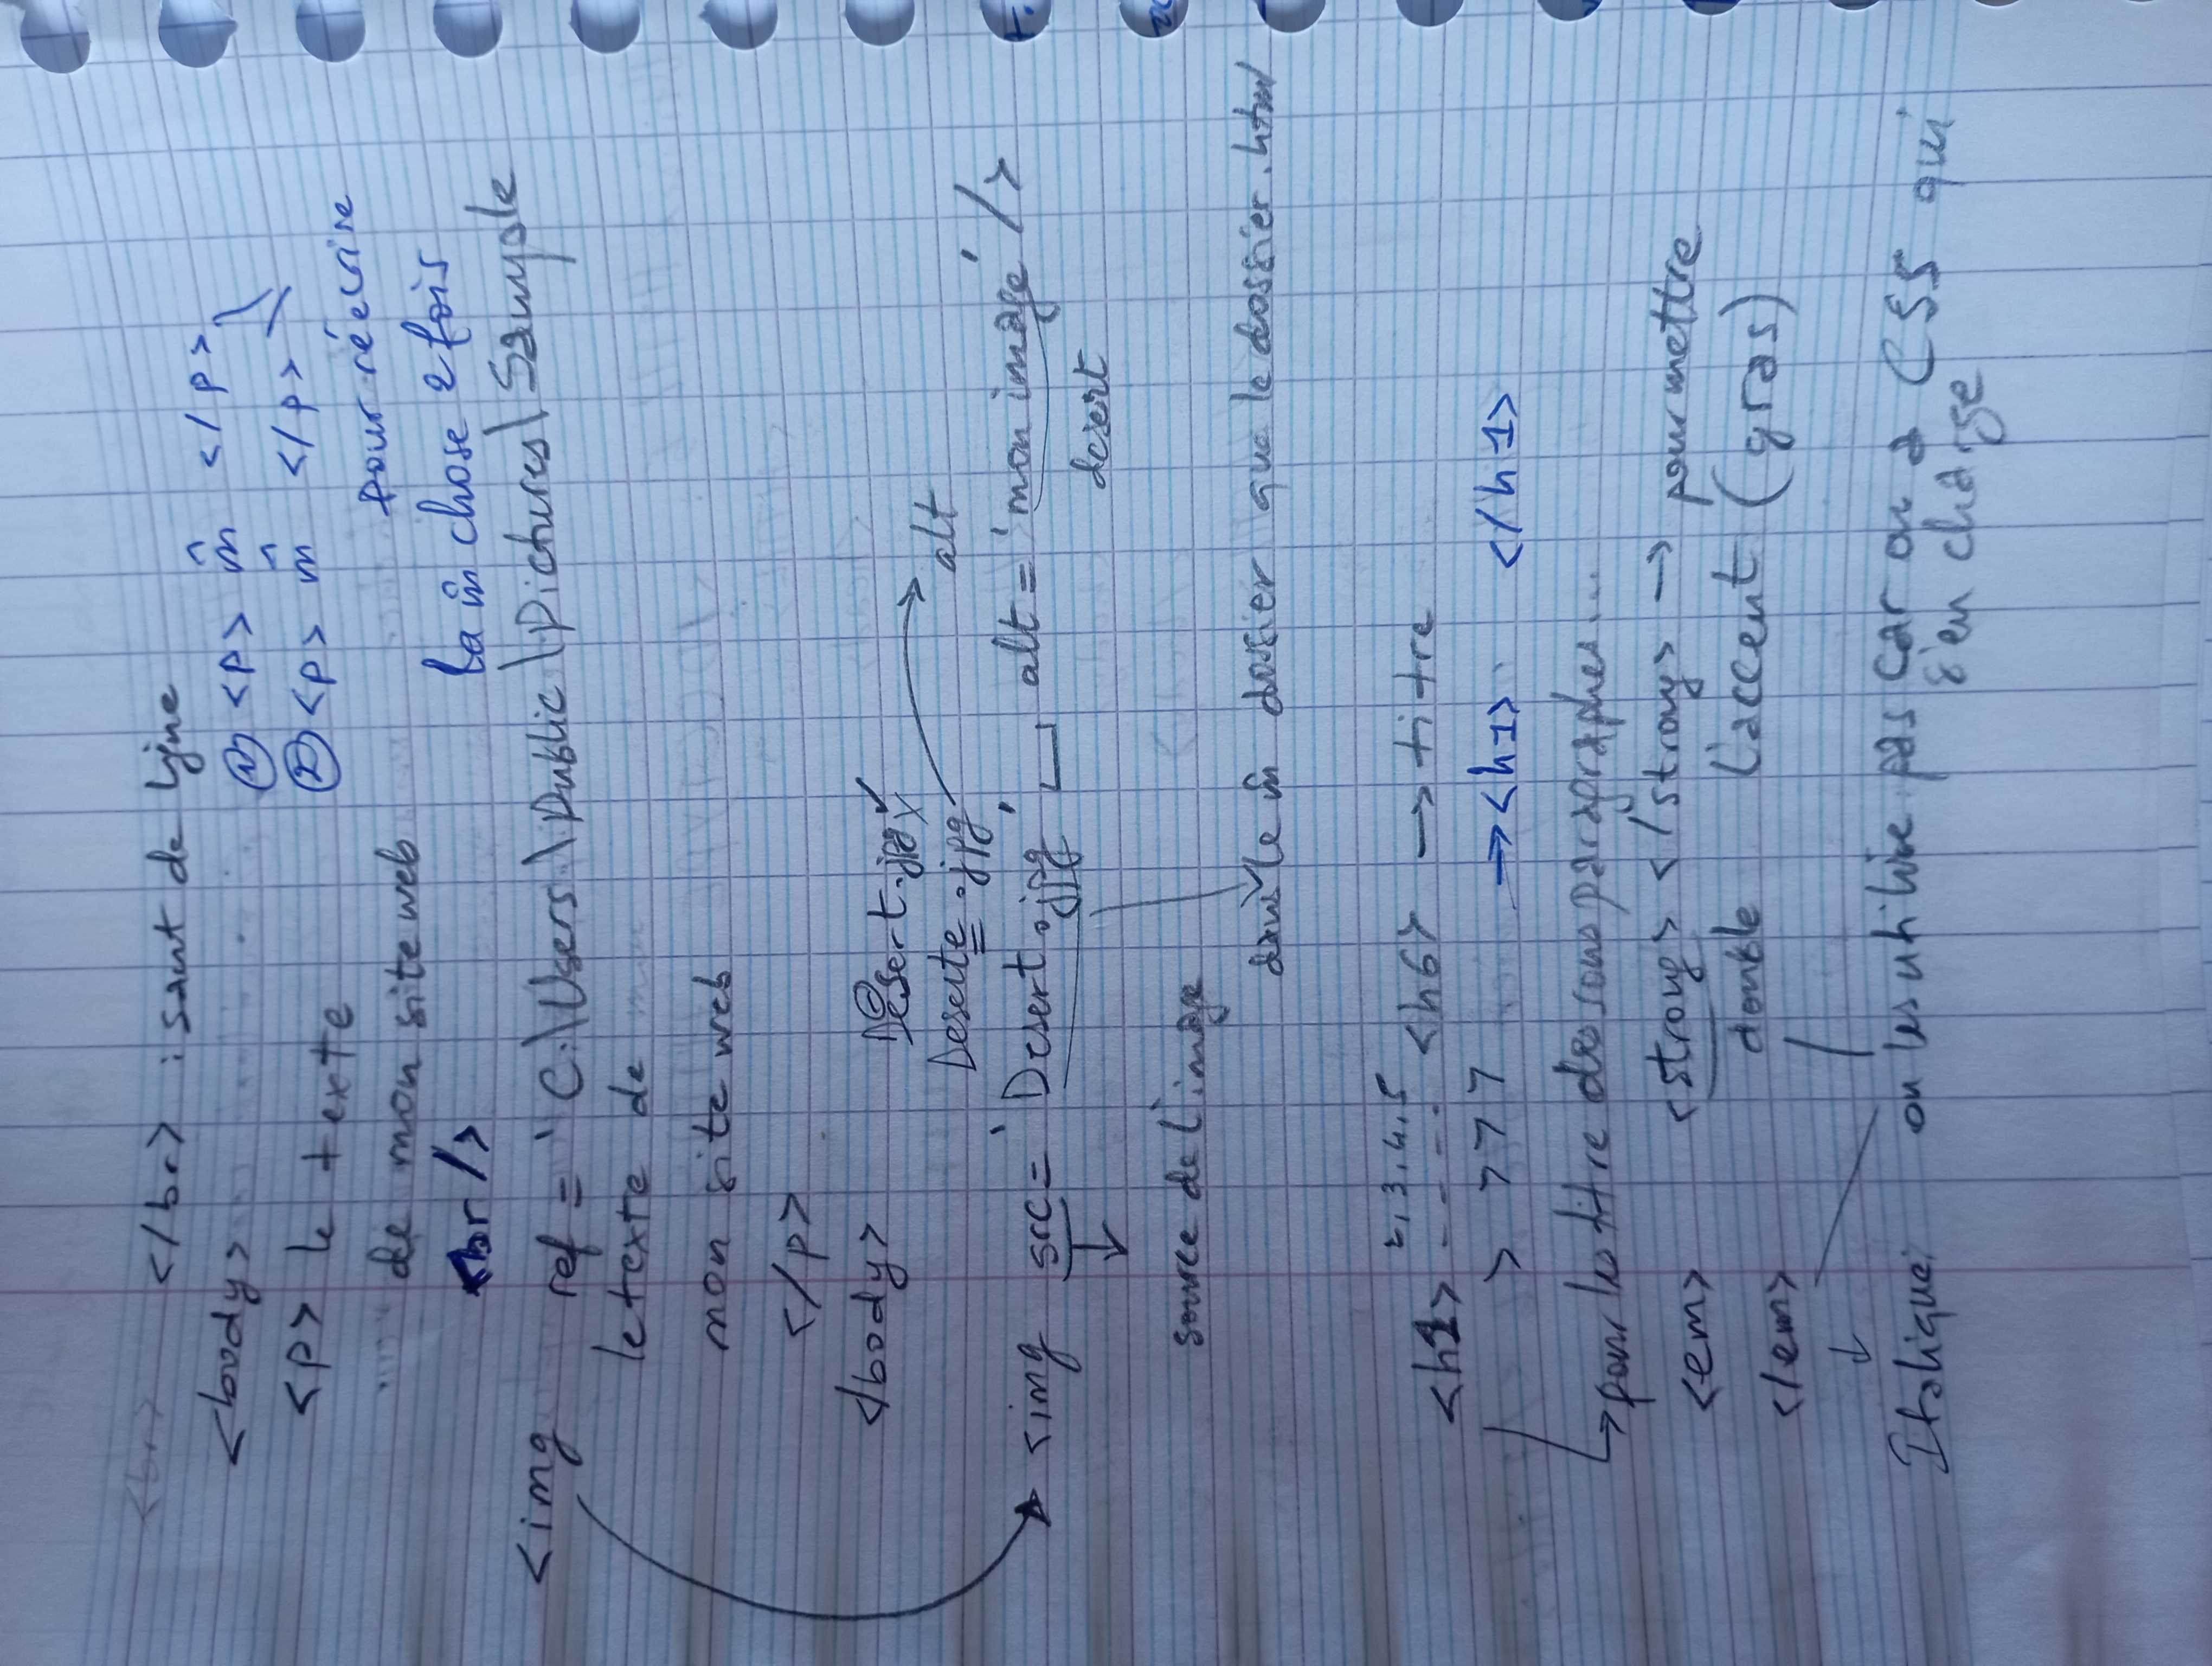 <br>
</br> : saut de ligne
<body>
<p> le texte
de mon site web
<br/>
① <p> m̂ </p>
② <p> m̂ </p>
pour réécrire
la m̂ chose 2 fois
<img ref = 'C:\Users\Public\Pictures\Sample
le texte de
mon site web
</p>
</body>
Desert.jpg
Deserte.jpg
alt
<img src = 'Desert.jpg' alt = 'mon image' />
desert
source de l'image
dans le m̂ dossier que le dossier.html
2,3,4,5
<h1> - - - - <h6> → titre
> > 7 7 → <h1> </h1>
→ pour les titre des sous paragraphes...
<em> <strong> </strong> → pour mettre
</em> double l'accent (gras)
↓
Italique on les utilise pas car on a CSS qui
s'en charge